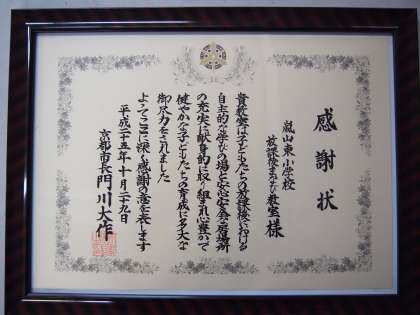 感謝状
嵐山東小学校
放課後まなび教室様
貴教室は子どもたちの放課後における
自主的な学びの場と安心安全な居場所
の充実に献身的に取り組まれ心豊かで
健やかな子どもたちの育成に多大な
御尽力をされました
よってここに深く感謝の意を表します
平成二十五年十月二十九日
京都市長門川大作